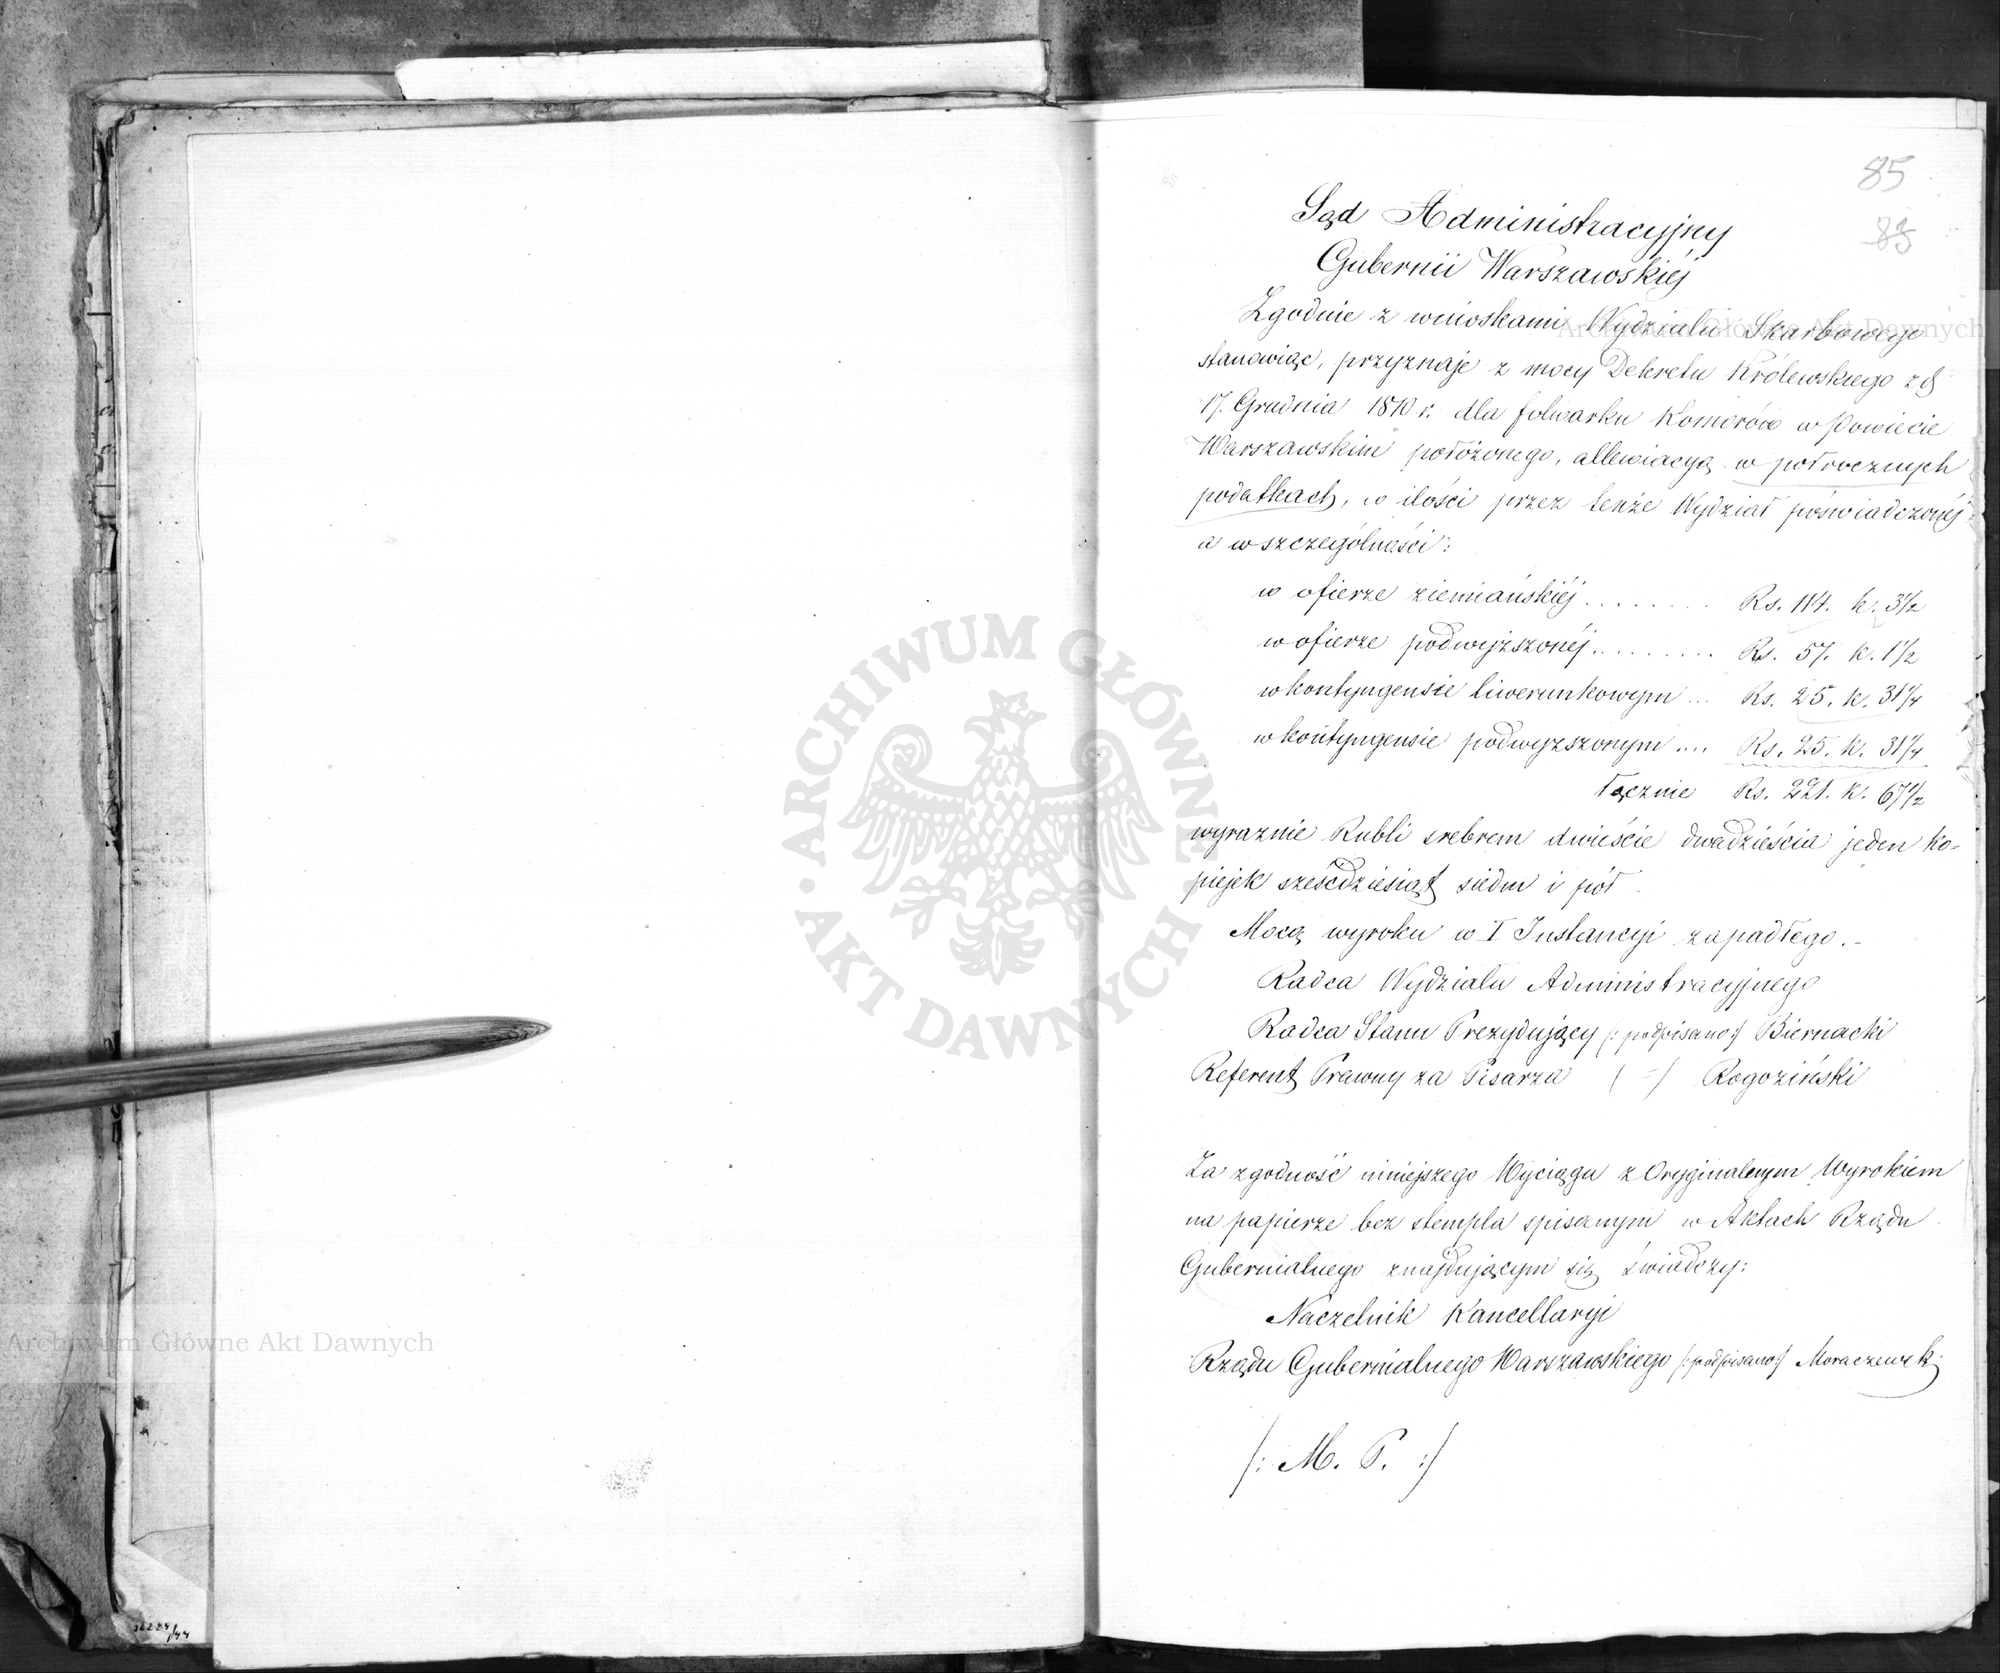 85
83
Sąd Administracyjny
Gubernii Warszawskiéj
Zgodnie z wnioskami Wydziału Skarbowego
stanowiąc, przyznaje z mocy Dekretu Królewskiego z d
17. Grudnia 1810 r. dla folwarku Komorów w Powiecie
Warszawskim położonego, allewiacyą w półrocznych
podatkach, w ilości przez tenże Wydział poświadczonéj
a w szczególności:
w ofierze ziemiańskiéj ........ Rs. 114. k. 3½
w ofierze podwyższonéj ......... Rs. 57. k. 1½
w kontyngensie liwerunkowym ... Rs. 25. k. 31¼
w kontyngensie podwyższonym .... Rs. 25. k. 31¼
łącznie Rs. 221. k. 67½
wyraznie Rubli srebrem dwieście dwadzieścia jeden ko-
piejek sześćdziesiąt siedm i pół
Mocą wyroku w I Instancyi zapadłego. -
Radca Wydziału Administracyjnego
Radca Stanu Prezydujący /: podpisano :/ Biernacki
Referent Prawny za Pisarza ( - ) Rogoziński
Za zgodność niniejszego Wyciągu z Oryginalnym Wyrokiem
na papierze bez stempla spisanym w Aktach Rządu
Gubernialnego znajdującym się świadczy:
Naczelnik Kancellaryi
Rządu Gubernialnego Warszawskiego /: podpisano :/ Moraczewski
/: M. P. :/
Archiwum Główne Akt Dawnych
ARCHIWUM GŁÓWNE · AKT DAWNYCH
Archiwum Główne Akt Dawnych